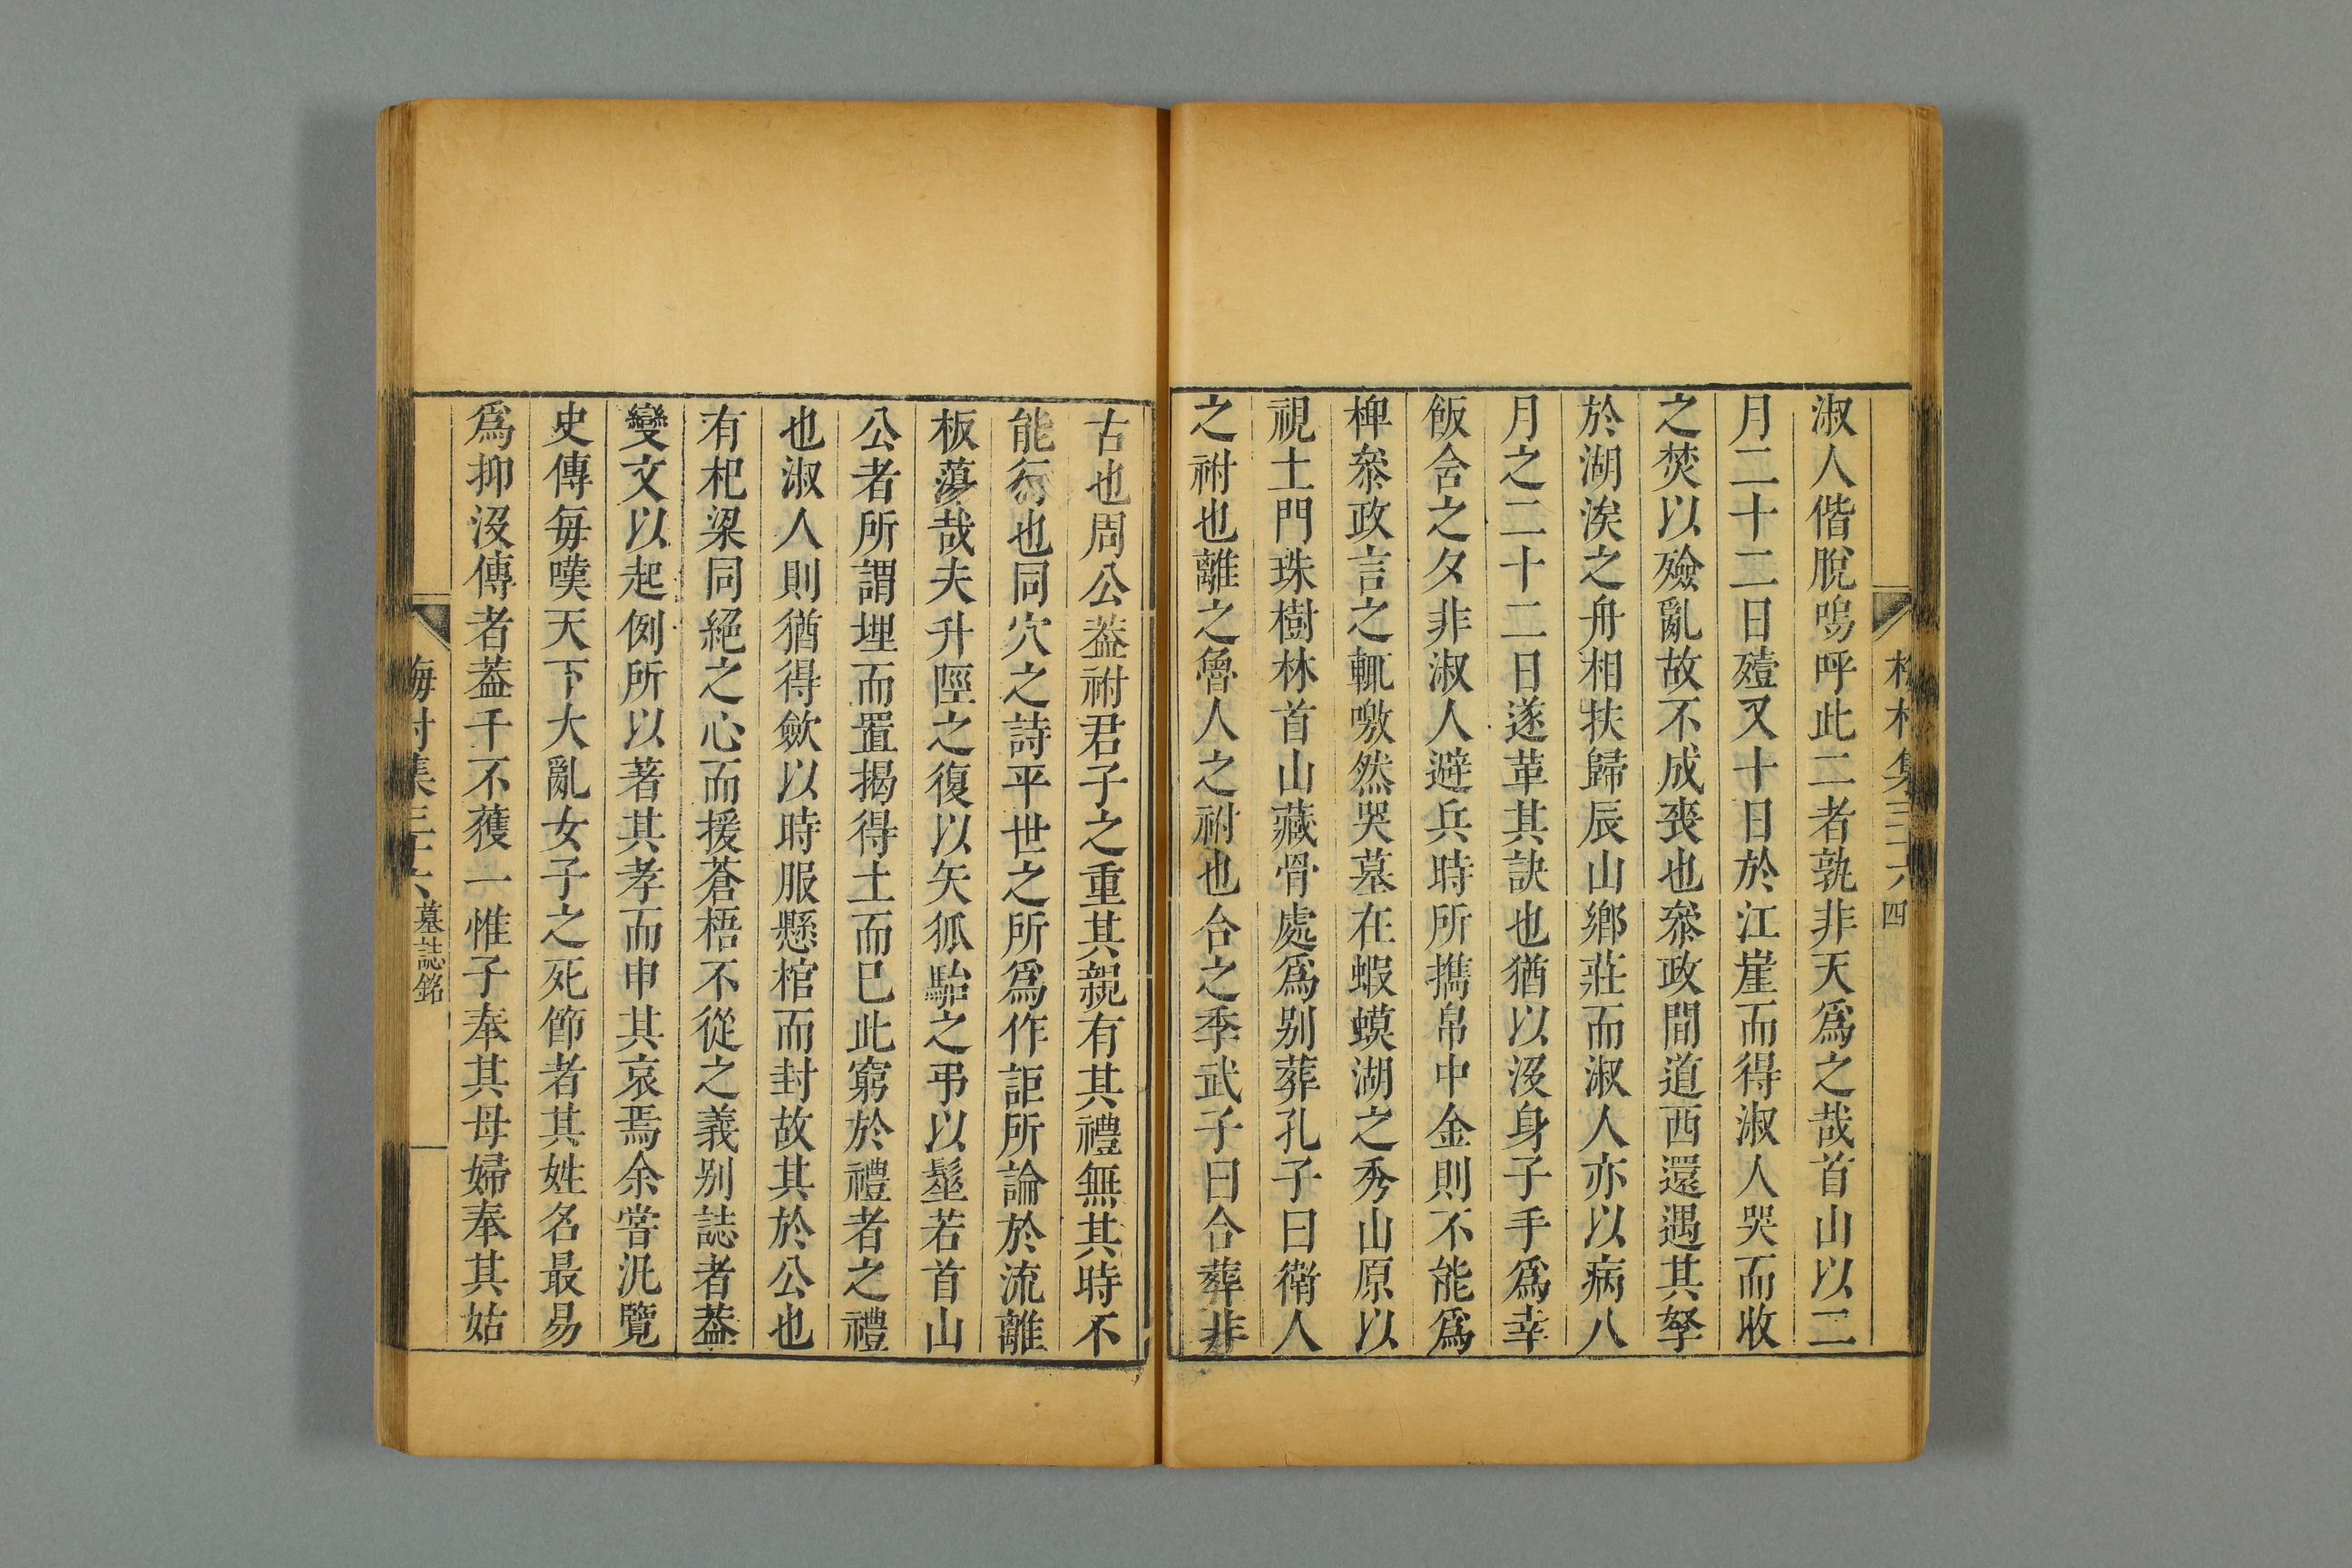 四
淑人偕脫嗚呼此二者孰非天爲之哉首山以二
月二十二日殪又十日於江崖而得淑人哭而收
之焚以殮亂故不成喪也叅政間道西還遇其孥
於湖涘之舟相扶歸辰山鄉莊而淑人亦以病八
月之二十二日遂革其訣也猶以沒身子手爲幸
飯含之夕非淑人避兵時所攜帛中金則不能爲
椑叅政言之輒噭然哭墓在蝦蟆湖之秀山原以
視土門珠樹林首山藏骨處爲别葬孔子曰衛人
之祔也離之魯人之祔也合之季武子曰合葬非
古也周公葢祔君子之重其親有其禮無其時不
能行也同穴之詩平世之所爲作詎所論於流離
板蕩哉夫升陘之復以矢狐駘之弔以髽若首山
公者所謂埋而置揭得土而已此窮於禮者之禮
也淑人則猶得歛以時服懸棺而封故其於公也
有杞梁同絕之心而援蒼梧不從之義别誌者葢
變文以起例所以著其孝而申其哀焉余嘗汎覽
史傳每嘆天下大亂女子之死節者其姓名最易
爲抑沒傳者葢千不獲一惟子奉其母婦奉其姑
墓誌銘